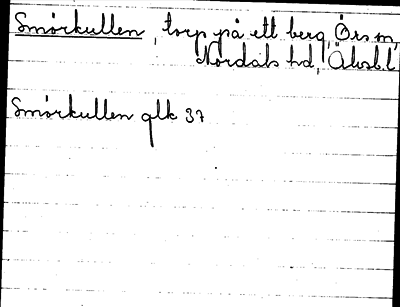 Smörkullen, torp på ett berg, Örs sn,
Nordals hd, Älvsb.l
Smörkullen glk 37